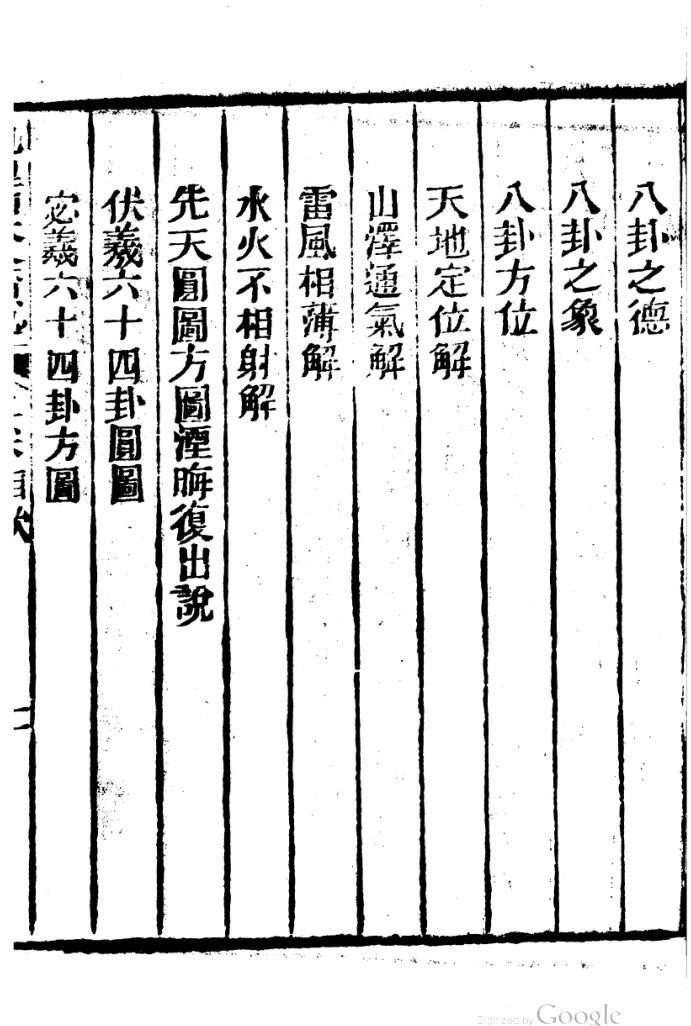 八卦之德
八卦之象
八卦方位
天地定位解
山澤通氣解
雷風相薄解
水火不相射解
先天圓圖方圖湮晦復出說
伏羲六十四卦圓圖
宓羲六十四卦方圖
Digitized by Google